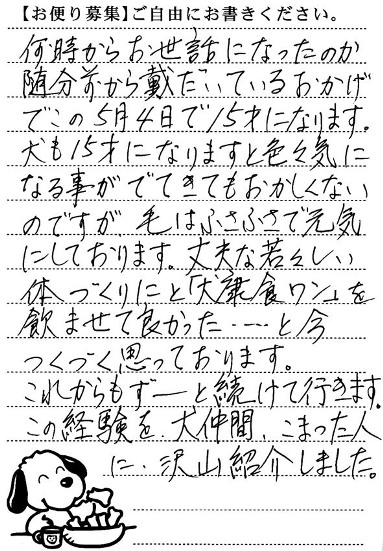 【お便り募集】ご自由にお書きください。
何時からお世話になったのか
随分前から戴だいているおかげ
でこの5月4日で15才になります。
犬も15才になりますと色々気に
なる事がでてきてもおかしくない
のですが毛はふさふさで元気
にしております。丈夫な若々しい
体づくりにと「犬康食ワン」を
飲ませて良かった……と今
つくづく思っております。
これからもずーと続けて行きます。
この経験を、犬仲間、こまった人
に、沢山紹介しました。